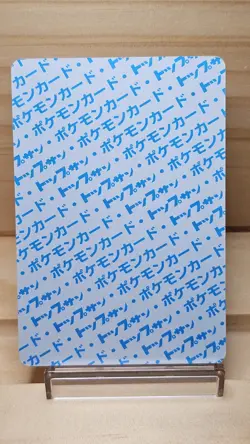 ポケモンカード・トップサン・ポケモンカード・
トップサン・ポケモンカード・トップサン
ポケモンカード・トップサン・ポケモンカード・
トップサン・ポケモンカード・トップサン
ポケモンカード・トップサン・ポケモンカード・
トップサン・ポケモンカード